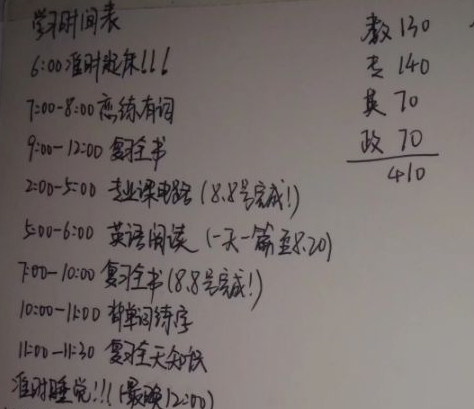 学习时间表
6:00准时起床!!!
7:00-8:00恋练有词
9:00-12:00复习全书
2:00-5:00 专业课电路(8.8号完成!)
5:00-6:00 英语阅读(一天一篇至8.20)
7:00-10:00复习全书(8.8号完成!)
10:00-11:00背单词练字
11:00-11:30 复习全天知识
准时睡觉!!!(最晚12:00)
数 130
专 140
英 70
政 70
410